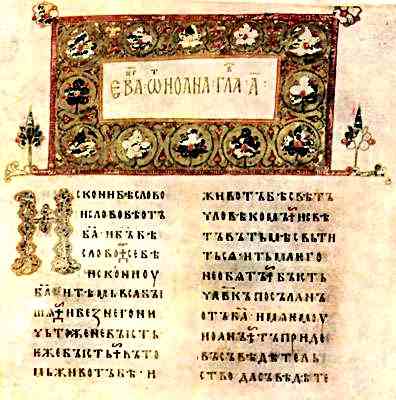 ЄВА҃·Ѡ҃ИОАНА·ГЛА҃·А҃·
ИСКОНИБѢСЛОВО
ИСЛОВОБѢОТЪ
БА҃·ИБЪ҃БѢ
СЛОВО⁘СЕБѢ
ИСКОНИОУ
БА҃·ИТѢМЬВСѦБЫ
ШѦ⁘ИБЕЗНЕГОНИ
ЧЬТОЖЕНЕБЫСТЬ
ИЖЕБЫСТЬ⁘ВЪТО
МЬЖИВОТЪБѢ·И
ЖИВОТЪБѢСВѢТЪ
ЧЛОВѢКОМЪ⁘ИСВѢ
ТЪВЪТЬМѢСВЬТИ
ТЬСѦ·ИТЬМАѤГО
НЕОБѦТЪ⁘БЫСТЬ
ЧЛВ҃КЪПОСЪЛАНЪ
ОТЪБА҃·ИМѦѤМОУ
ИОАНЪ⁘ТЪПРИДЕ
ВЪСЪВѢДѢТЕЛЬ
СТВОДАСЪВѢДѢТЕ